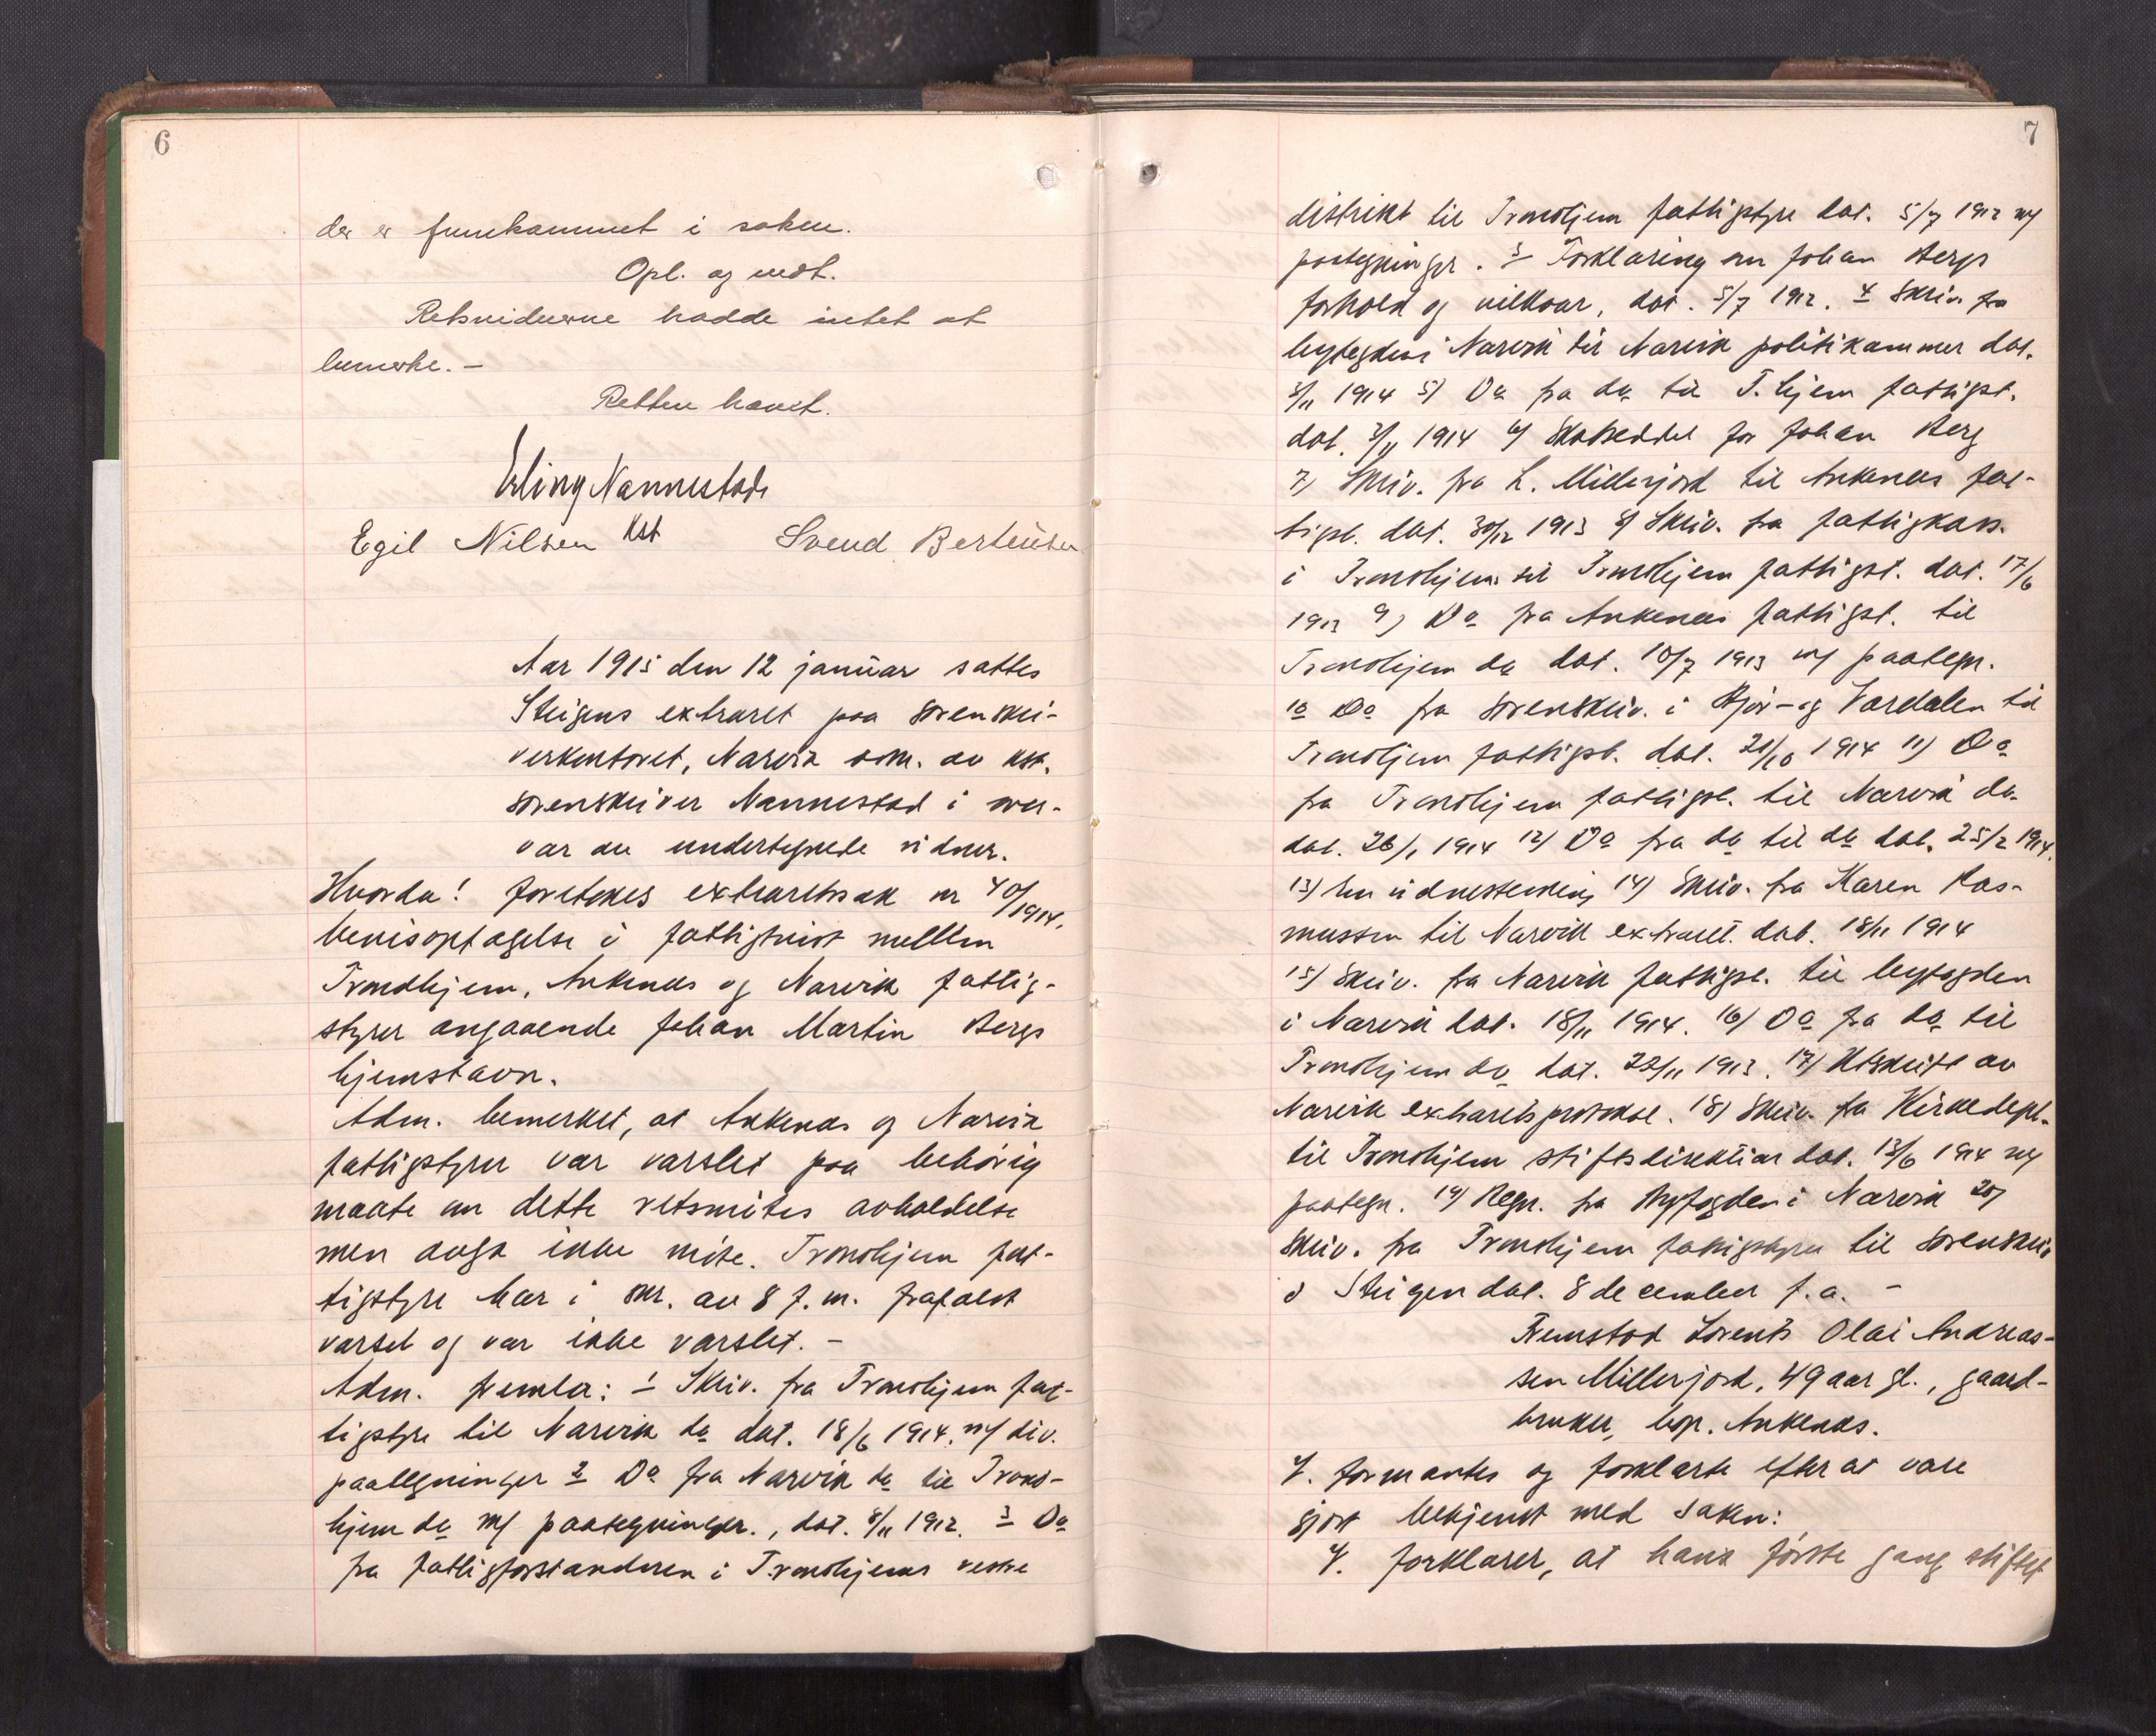 6
der er fremkommet i saken.
Opl. og vedt.
Retsvidnerne hadde intet at
bemerke. –
Retten hævet.
Erling Nannestad
Kst
Egil Nilsen Svend Bertensen
Aar 1915 den 12 januar sattes
Steigens extraret paa sorenskri-
verkontoret, Narvik adm. av kst.
sorenskriver Nannestad i over-
vær av undertegnede vidner.
Hvorda! foretokes extraretssak nr 40/1914.
bevisoptagelse i fattigtvist mellem
Trondhjem, Ankenes og Narvik fattig-
styrer angaaende Johan Martin Bergs
hjemstavn.
Adm. bemerket, at Ankenes og Narvik
fattigstyrer var varslet paa behörig
maate om dette retsmötes avholdelse
men avga ikke möte. Trondhjem fat-
tigstyre har i skr. av 8 f. m. frafaldt
varsel og var ikke varslet. –
Adm. fremla: 1 Skriv. fra Trondhjem fat-
tigstyre til Narvik do dat. 18/6 1914. m/ div.
paategninger 2 Do fra Narvik do til Trond-
hjem do m/ paategninger., dat. 8/11 1912. 3 Do
fra fattigforstanderen i Trondhjems vestre
7
distrikt til Trondhjem fattigstyre dat. 5/7 1912 m/
paategninger. 3 Forklaring om Johan Bergs
forhold og vilkaar, dat. 5/7 1912. 4 Skriv. fra
byfogden i Narvik til Narvik politikammer dat.
3/11 1914 5) Do fra do til T.hjem fattigst.
dat. 3/11 1914 6) Skatseddel for Johan Berg
7) Skriv. fra L. Millerjord til Ankenes fat-
tigst. dat. 30/12 1913 8) Skriv. fra fattigkass.
i Trondhjem til Trondhjem fattigst. dat. 17/6
1913 9) Do fra Ankenes fattigst. til
Trondhjem do dat. 10/7 1913 m/ paategn.
10 Do fra sorenskriv. i Stjör- og Værdalen til
Trondhjem fattigst. dat. 21/10 1914 11) Do
fra Trondhjem fattigst. til Narvik do
dat. 26/1 1914 12) Do fra do til do dat. 25/2 1914.
13) En vidnestevning 14) Skriv. fra Karen Ras-
mussen til Narvik extraret. dat. 18/11 1914
15) Skriv. fra Narvik fattigst. til byfogden
i Narvik dat. 18/11 1914. 16) Do fra do til
Trondhjem do dat. 22/11 1913. 17) Utskrift av
Narvik extraretsprotokol. 18) Skriv. fra Kirkedept.
til Trondhjem stiftsdirektion dat. 13/6 1914 m/
paategn. 19) Regn. fra Byfogden i Narvik 20)
Skriv. fra Trondhjem fattigstyre til sorenskriv
i Steigen dat. 8 december f.a. –
Fremstod Lorents Olai Andreas-
sen Millerjord, 49 aar gl., gaard-
bruker, bop. Ankenes.
V. formantes og forklarte efter at være
gjort bekjendt med saken:
V. forklarer, at hans förste gang stiftet